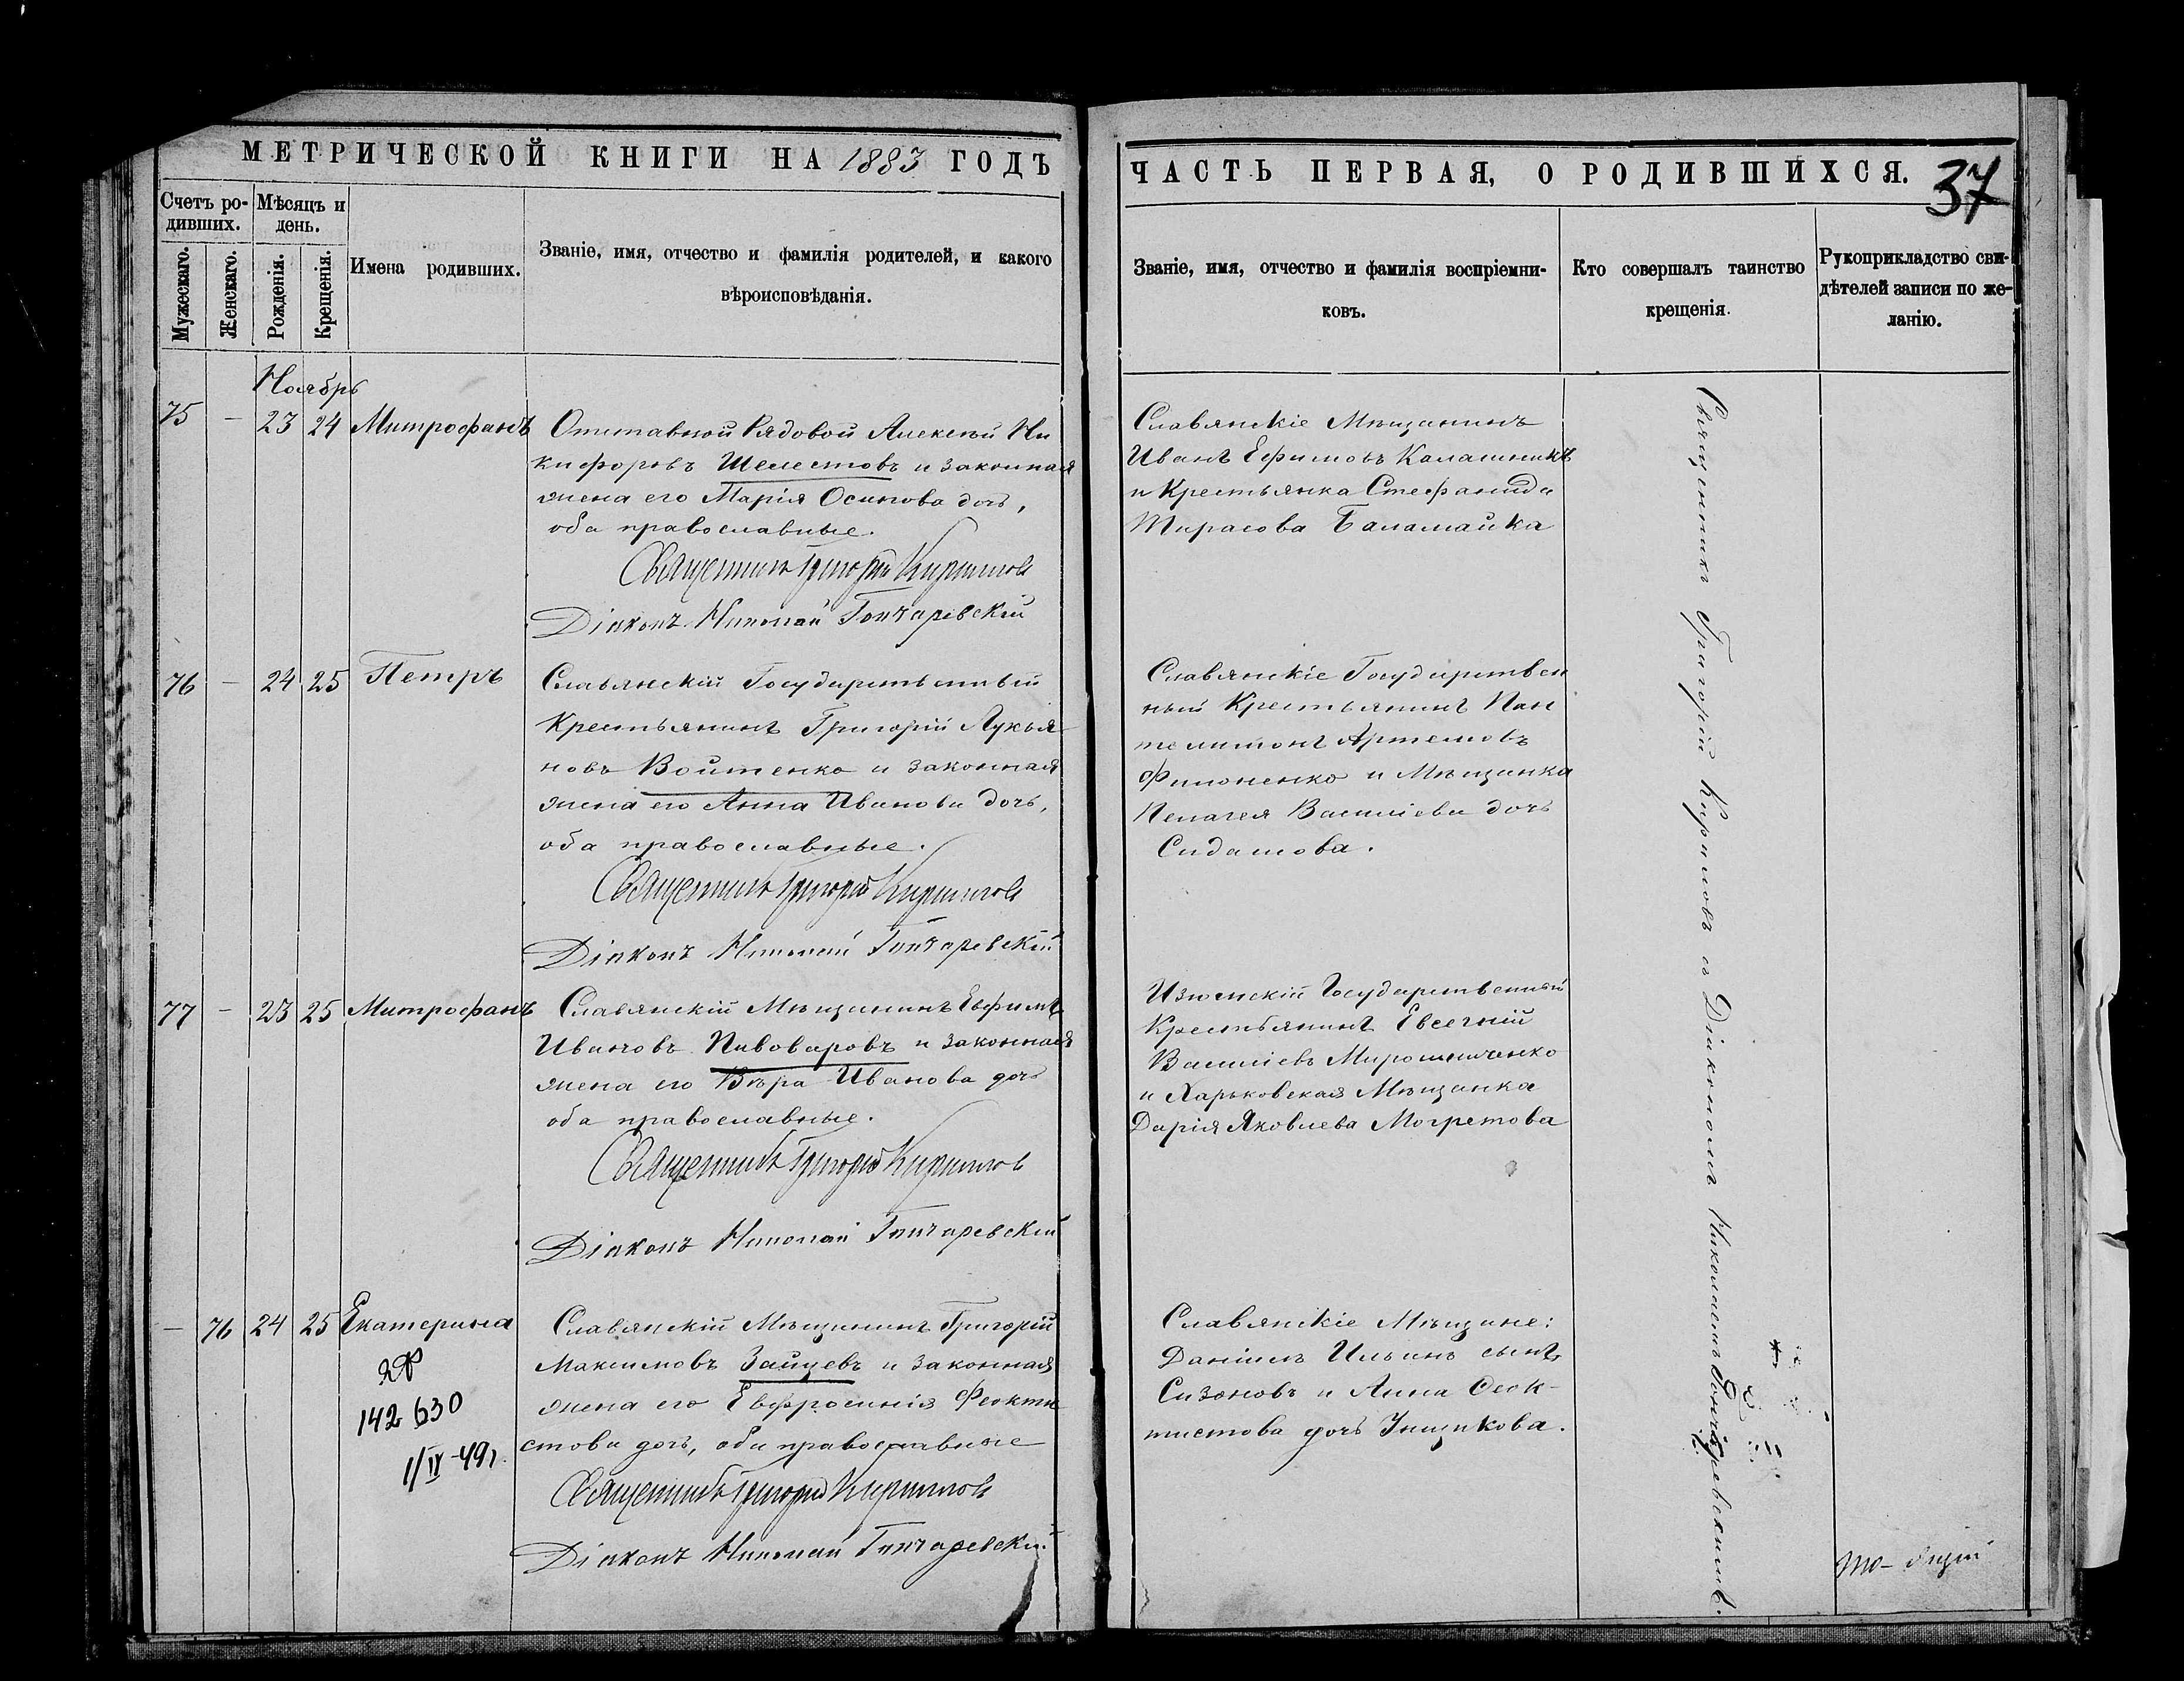 МЕТРИЧЕСКОЙ КНИГИ НА 1883 ГОДЪ
Счетъ ро-
дивших.
Мѣсяцъ и
день.
Мужескаго.
Женскаго.
Рожденія.
Крещенія.
Имена родивших.
Званіе, имя, отчество и фамилія родителей, и какого
вѣроисповѣданія.
Ноябрь
75 – 23 24 Митрофанъ
Отставной Рядовой Алексѣй Ни
кифоровъ Шелестовъ и законная
жена его Марія Осипова дочь,
оба православные.
Священникъ Григорій Кириловъ
Діаконъ Николай Гончаревскій
76 – 24 25 Петръ
Славянскій Государственный
Крестьянинъ Григорій Лукья
новъ Войтенко и законная
жена его Анна Иванова дочь,
оба православные.
Священникъ Григорій Кириловъ
Діаконъ Николай Гончаревскій
77 – 23 25 Митрофанъ
Славянскій Мѣщанинъ Евфимъ
Ивановъ Пивоваровъ и законная
жена его Вѣра Иванова дочь
оба православные.
Священникъ Григорій Кириловъ
Діаконъ Николай Гончаревскій
– 76 24 25 Екатерина
Славянскій Мѣщанинъ Григорій
Максимовъ Зайцевъ и законная
жена его Евфросинія Феокти
стова дочь, оба православные
Священникъ Григорій Кириловъ
Діаконъ Николай Гончаревскій
142 630
1/IV-49г.
ЧАСТЬ ПЕРВАЯ, О РОДИВШИХСЯ.
37
Званіе, имя, отчество и фамилія воспріемни-
ковъ.
Кто совершалъ таинство
крещенія.
Рукоприкладство сви-
дѣтелей записи по же-
ланію.
Славянскіе Мѣщанинъ
Иванъ Ефимовъ Калашникъ
и Крестьянка Стефанида
Тарасова Балалайка
Славянскіе Государствен
ный Крестьянинъ Пан
телимонъ Артемовъ
Филоненко и Мѣщанка
Пелагея Василіева дочь
Сидашова.
Изюмскій Государственный
Крестьянинъ Евсегній
Василіевъ Мирошниченко
и Харьковская Мѣщанка
Дарія Яковлева Могретова
Славянскіе Мѣщане:
Даніилъ Ильинъ сынъ
Сизоновъ и Анна Феок-
тистова дочь
Священникъ Григорій Кириловъ съ Діакономъ Николаемъ Гончаревскимъ.